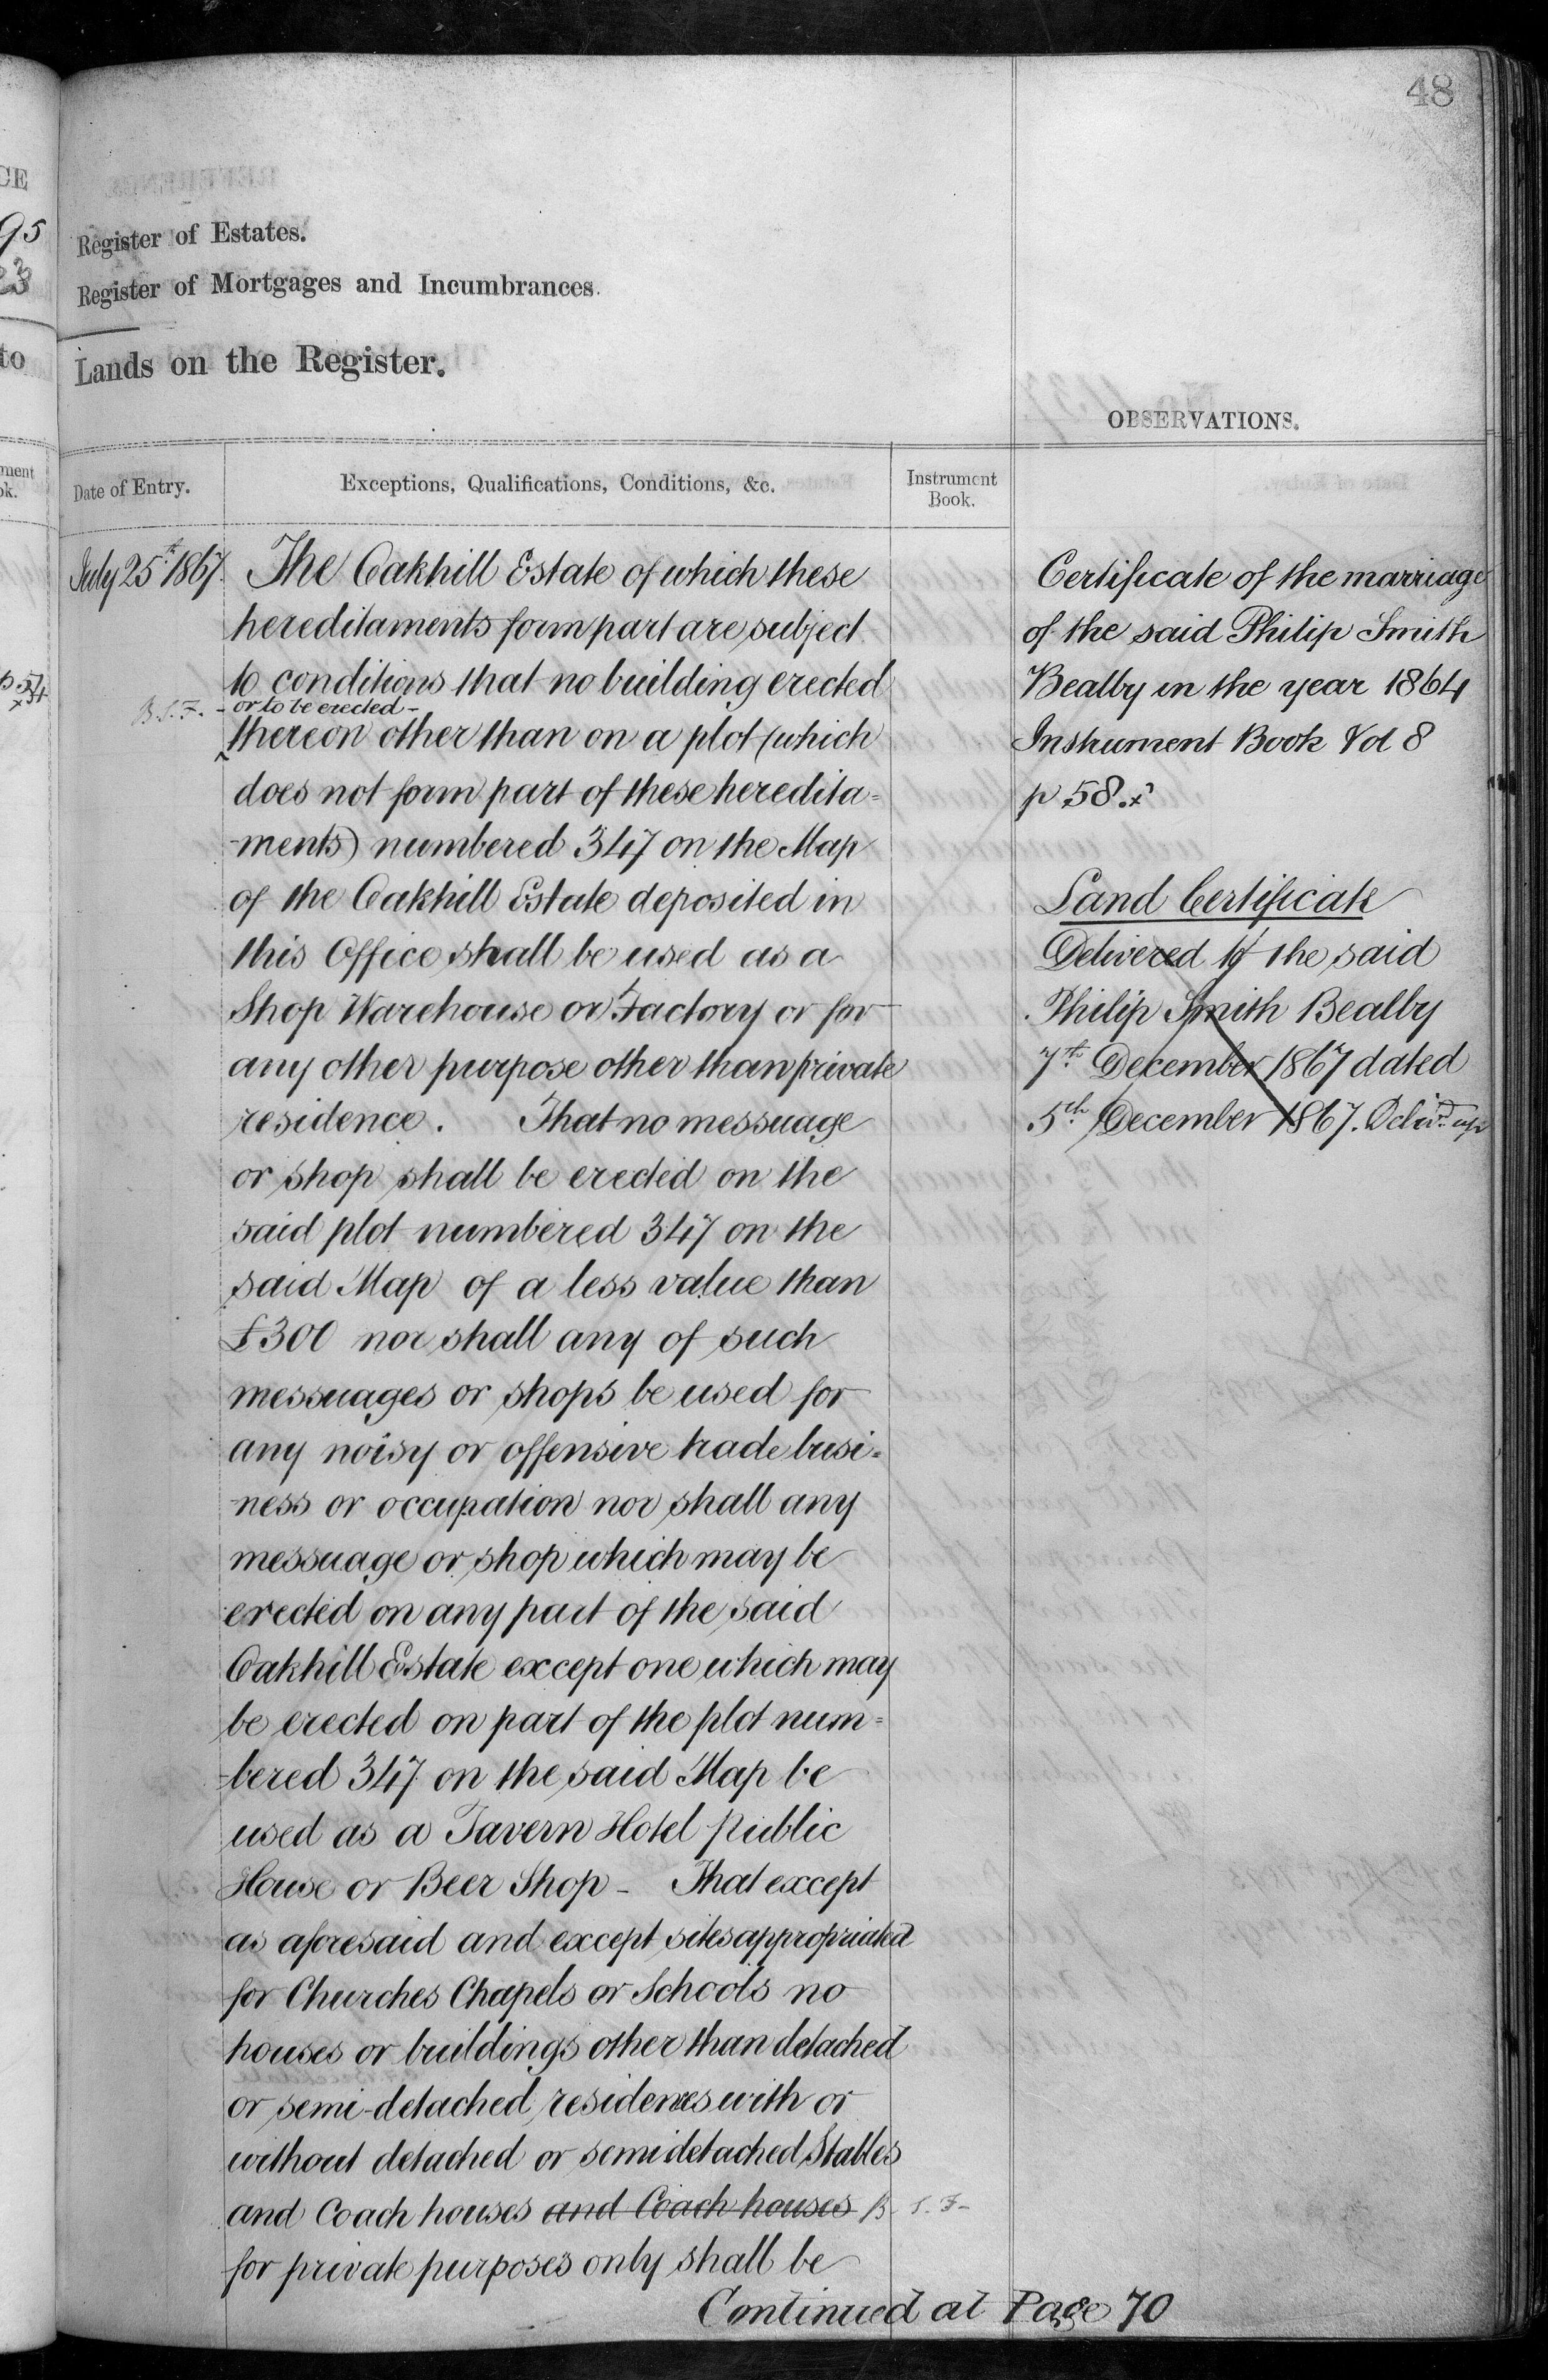 48
CE
95
23
to
ment
ok.
p 54
Register of Estates.
Register of Mortgages and Incumbrances.
Lands on the Register.
OBSERVATIONS.
Date of Entry.
Exceptions, Qualifications, Conditions, &c.
Instrument
Book.
July 25th 1867.
The Oakhill Estate of which these
hereditaments form part are subject
to conditions that no building erected
B.S.F. - or to be erected -
thereon other than on a plot (which
does not form part of these heredita=
-ments) numbered 347 on the Map
of the Oakhill Estate deposited in
this Office shall be used as a
Shop Warehouse or Factory or for
any other purpose other than private
residence. That no messuage
or shop shall be erected on the
said plot numbered 347 on the
said Map of a less value than
£300 nor shall any of such
messuages or shops be used for
any noisy or offensive trade busi=
-ness or occupation nor shall any
messuage or shop which may be
erected on any part of the said
Oakhill Estate except one which may
be erected on part of the plot num=
-bered 347 on the said Map be
used as a Tavern Hotel Public
House or Beer Shop - That except
as aforesaid and except sites appropriated
for Churches Chapels or Schools no
houses or buildings other than detached
or semi-detached residences with or
without detached or semi detached Stables
and Coach houses and Coach houses B.S.F-
for private purposes only shall be
Continued at Page 70
Certificate of the marriage
of the said Philip Smith
Bealby in the year 1864
Instrument Book Vol 8
p 58.x
Land Certificate
Delivered to the said
Philip Smith Bealby
7th December 1867 dated
5th December 1867. Deliv.d up